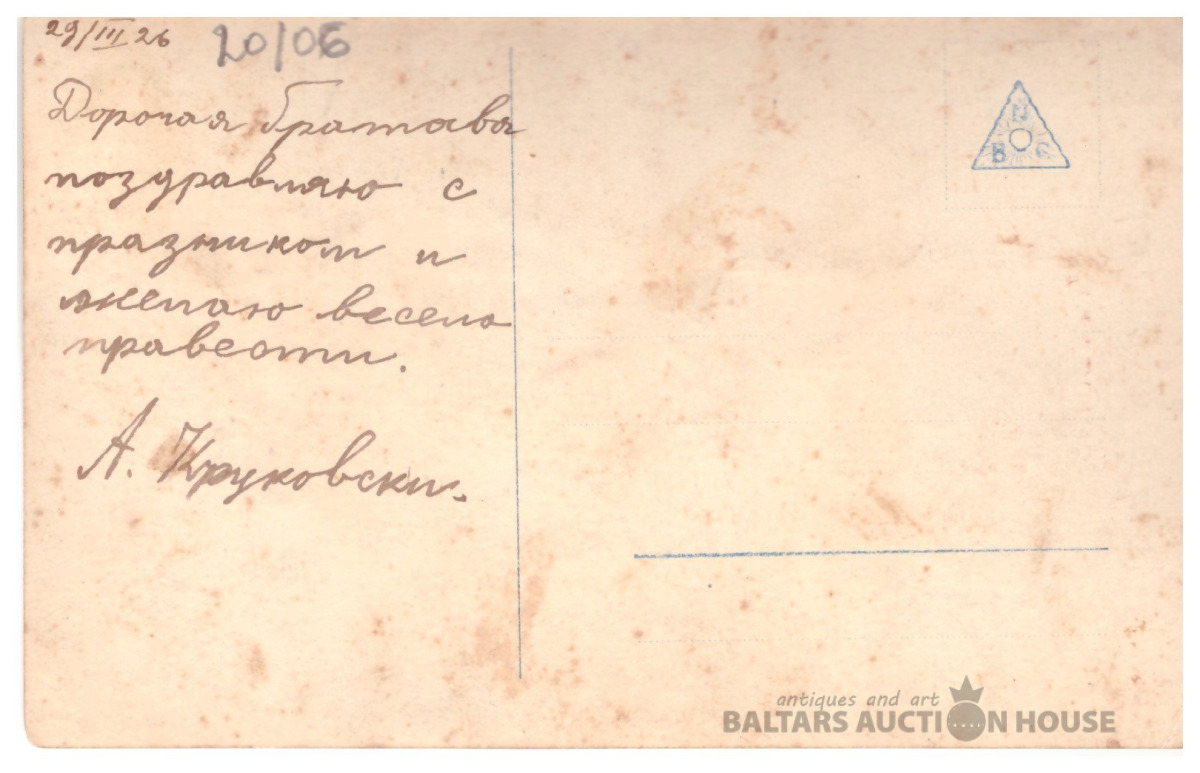 29/III 26
20/06
Дорочая братава
поздравляю с
празником и
желаю весело
правести.
А. Круковски.
N
B C
antiques and art
BALTARS AUCTION HOUSE